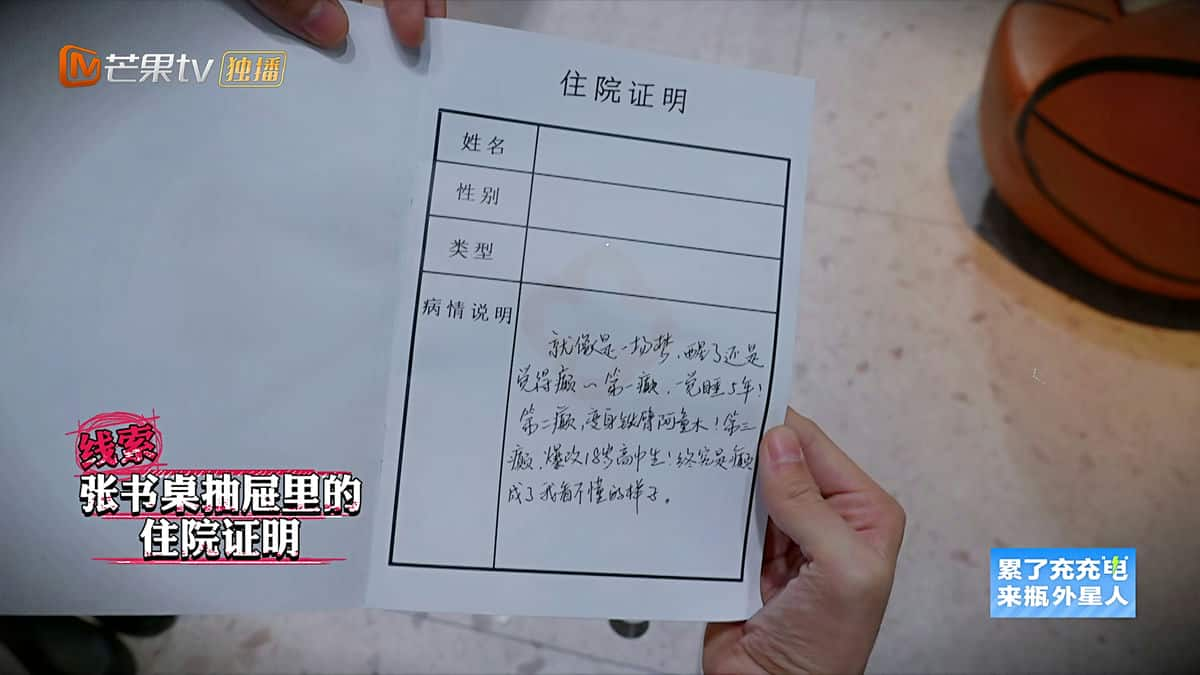 芒果tv 独播
住院证明
姓名
性别
类型
病情说明
就像是一场梦,醒了还是
觉得癫~第一癫,一觉睡5年!
第二癫,变身铁臂阿童木!第三
癫,爆改18岁高中生!终究是癫
成了我看不懂的样子。
线索
张书桌抽屉里的
住院证明
累了充充电
来瓶外星人